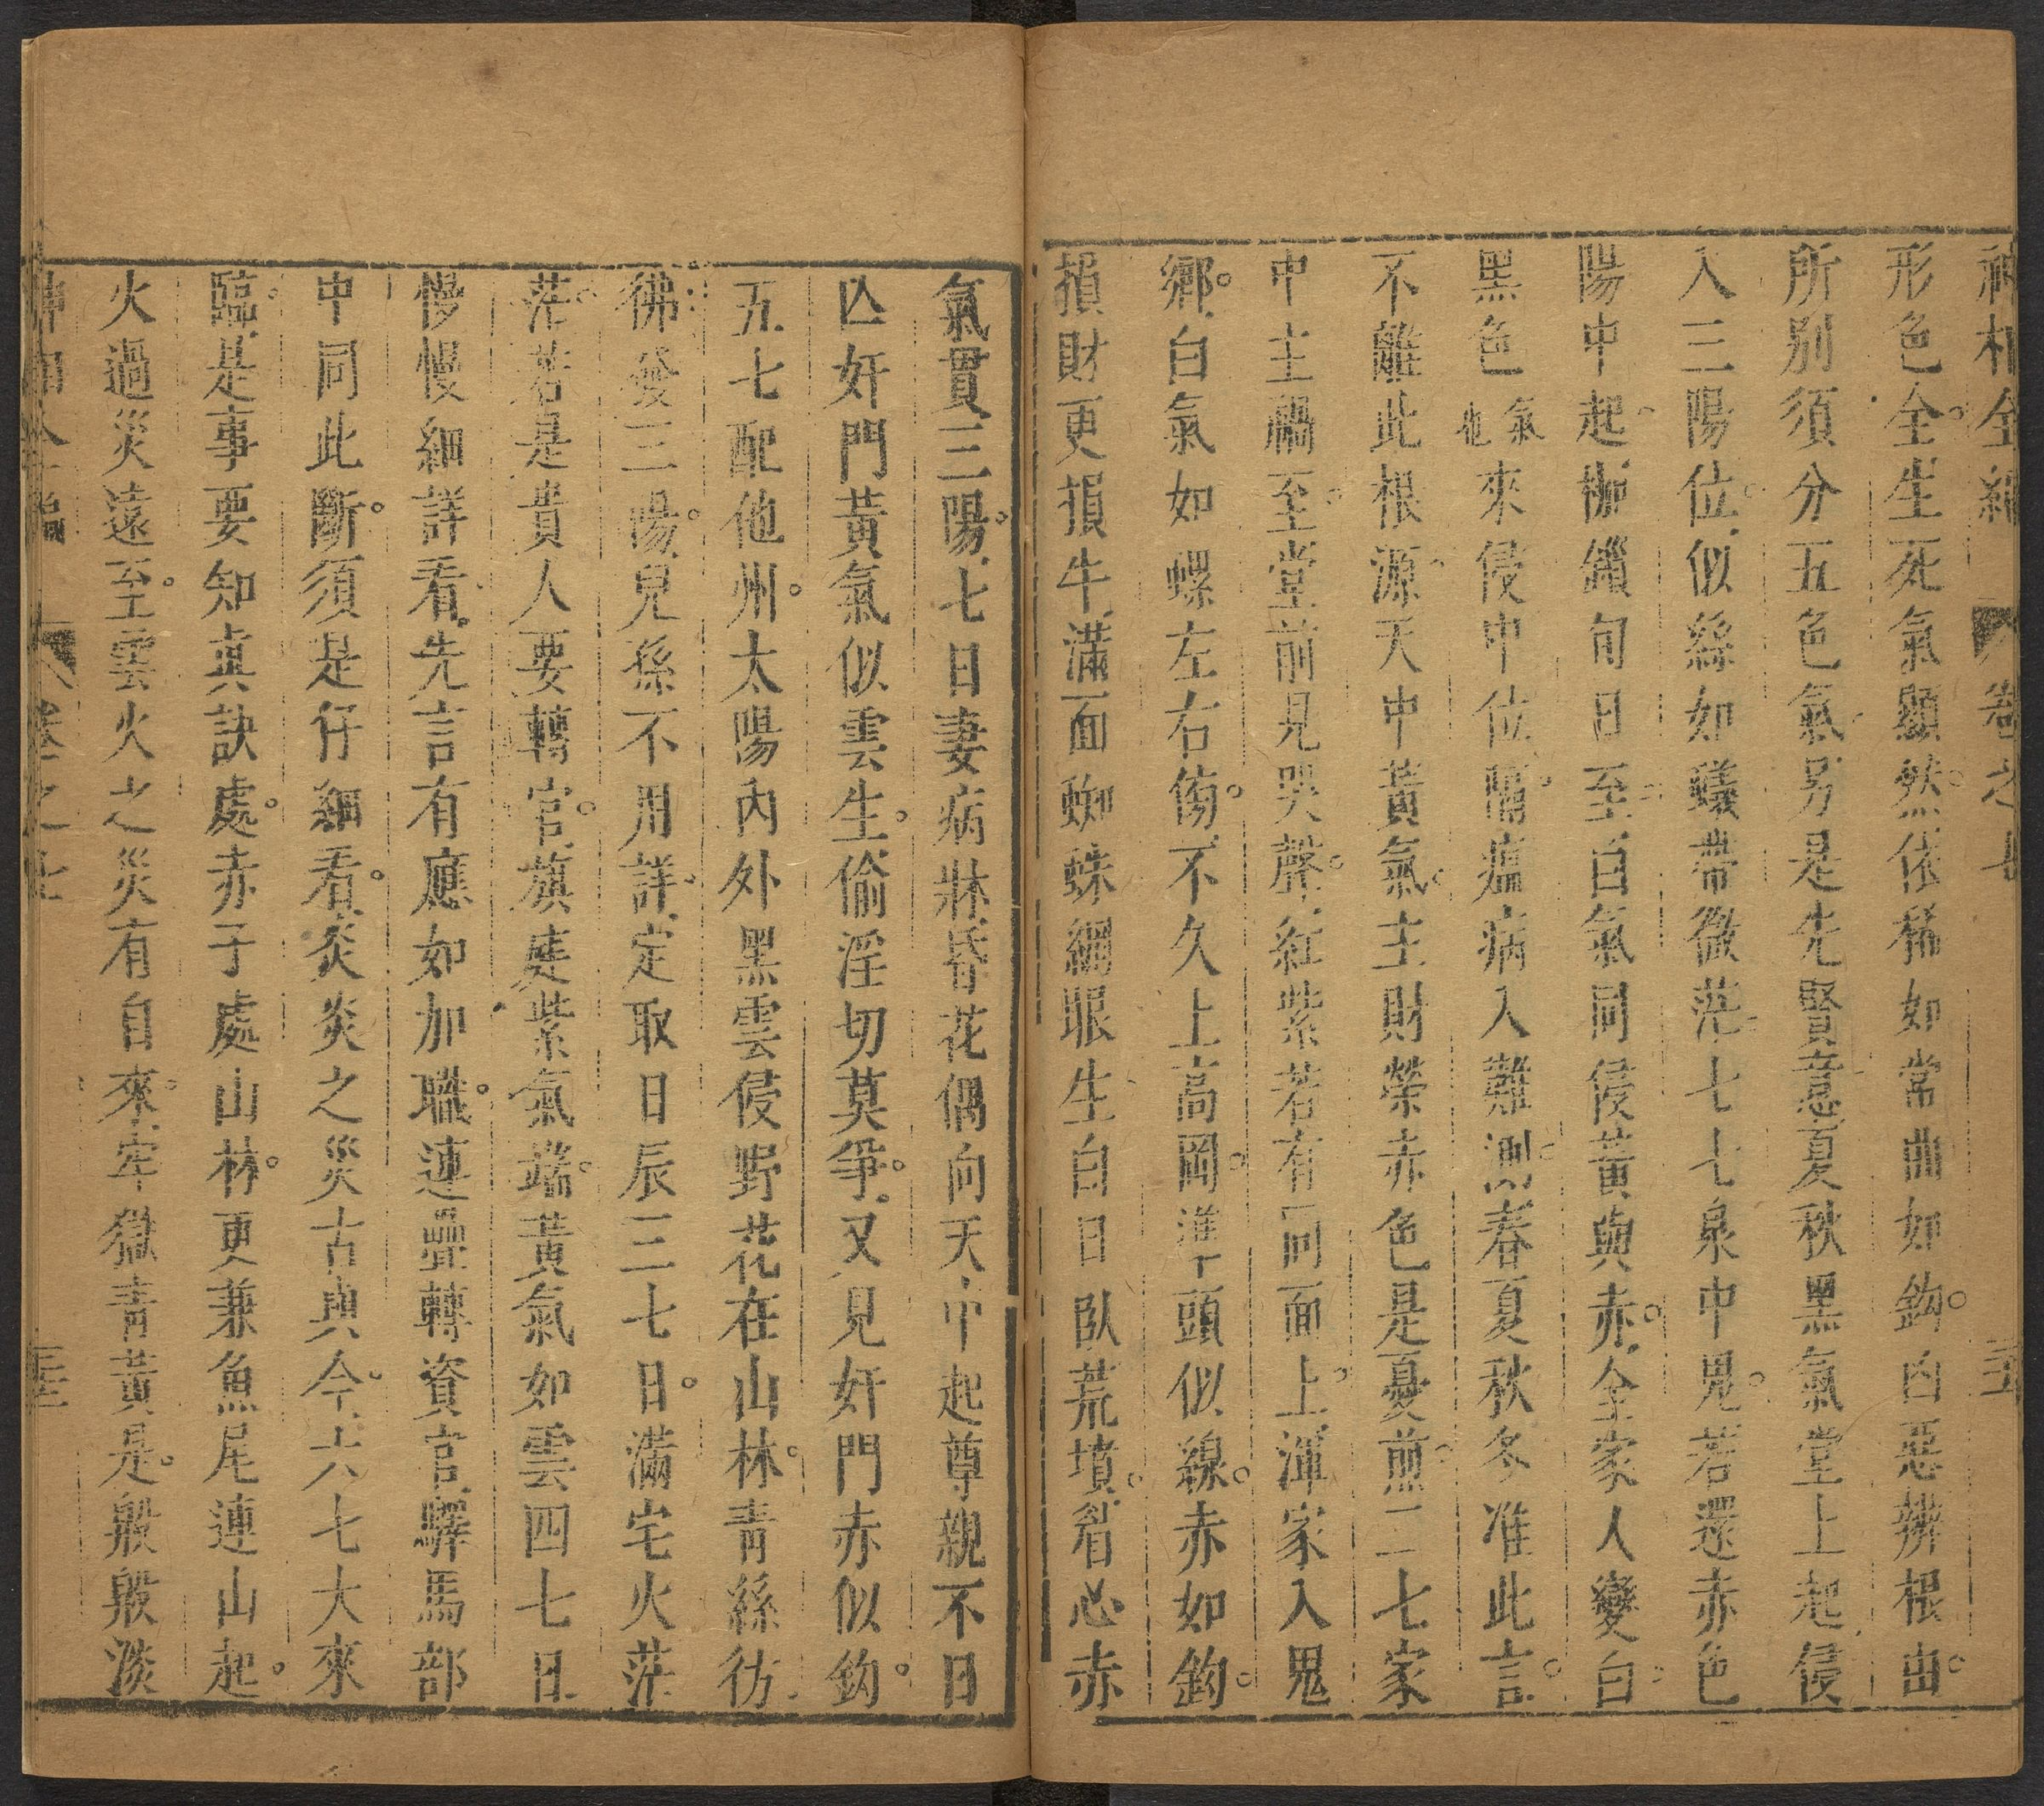 神相全編 卷之七
形色全生死氣顯然依稀如常曲如鈎白惡辨根由
所別須分五色氣另是先賢意夏秋黑氣堂上起侵
入三陽位似絲如蟻帶微茫七七泉中鬼若還赤色
陽中起枷鎖旬日至白氣同侵黃與赤全家人變白
黑色氣也來侵中位隔瘟病入難測春夏秋冬准此言
不離此根源天中黃氣主財榮赤色是憂煎二七家
中主禍至堂前見哭聲紅紫若有同面上渾家入鬼
鄉白氣如螺左右傷不久上高岡準頭似線赤如鈎
損財更損牛滿面蜘蛛網眼生白日臥荒墳眉必赤
氣貫三陽七日妻病牀昏花偶向天中起尊親不日
亡奸門黃氣似雲生偷淫切莫爭又見奸門赤似鈎
五七配他州太陽內外黑雲侵野花在山林青絲彷
彿發三陽兒孫不用詳定取日辰三七日滿宅火茫
茫若是貴人要轉官旗庭紫氣端黃氣如雲四七日
慢慢細詳看先言有應如加職連疊轉資官驛馬部
中同此斷須是仔細看炎炎之災古與今六七大來
臨是事要知真訣處赤于處山林更兼魚尾連山起
火過災遠至雲火之災有自來牢獄青黃是般般淡
神相全編 卷之七